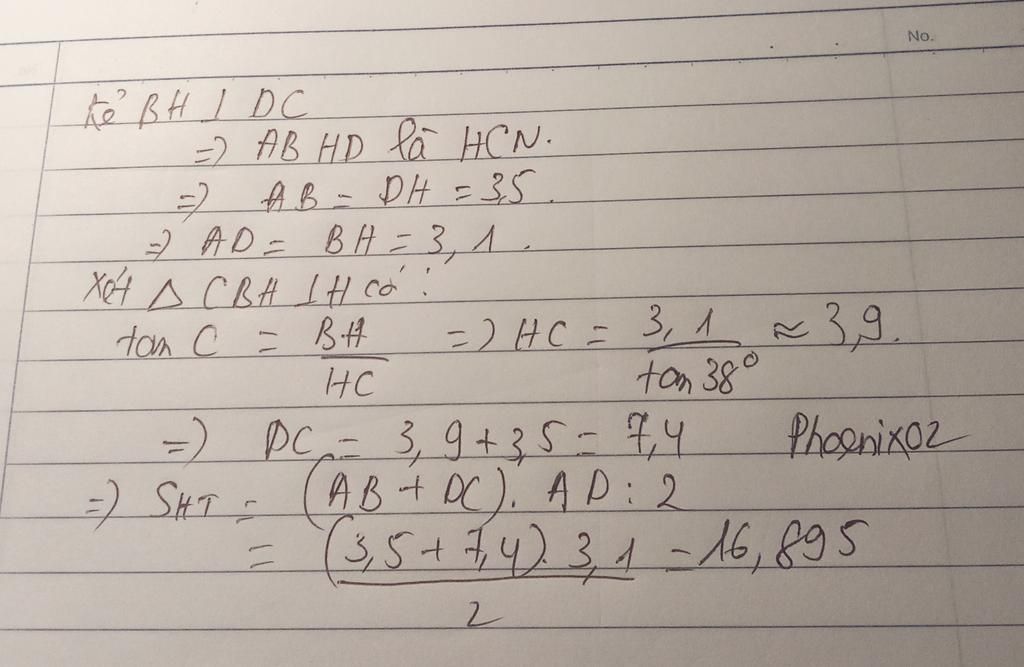 No.
Kẻ BH ⊥ DC
=> ABHD là HCN.
=> AB = DH = 3,5.
=> AD = BH = 3,1.
Xét Δ CBH ⊥ H có :
tan C = BH / HC => HC = 3,1 / tan 38° ≈ 3,9.
=> DC = 3,9 + 3,5 = 7,4 Phoenix02
=> SHT = (AB + DC). AD : 2
= (3,5 + 7,4). 3,1 / 2 = 16,895